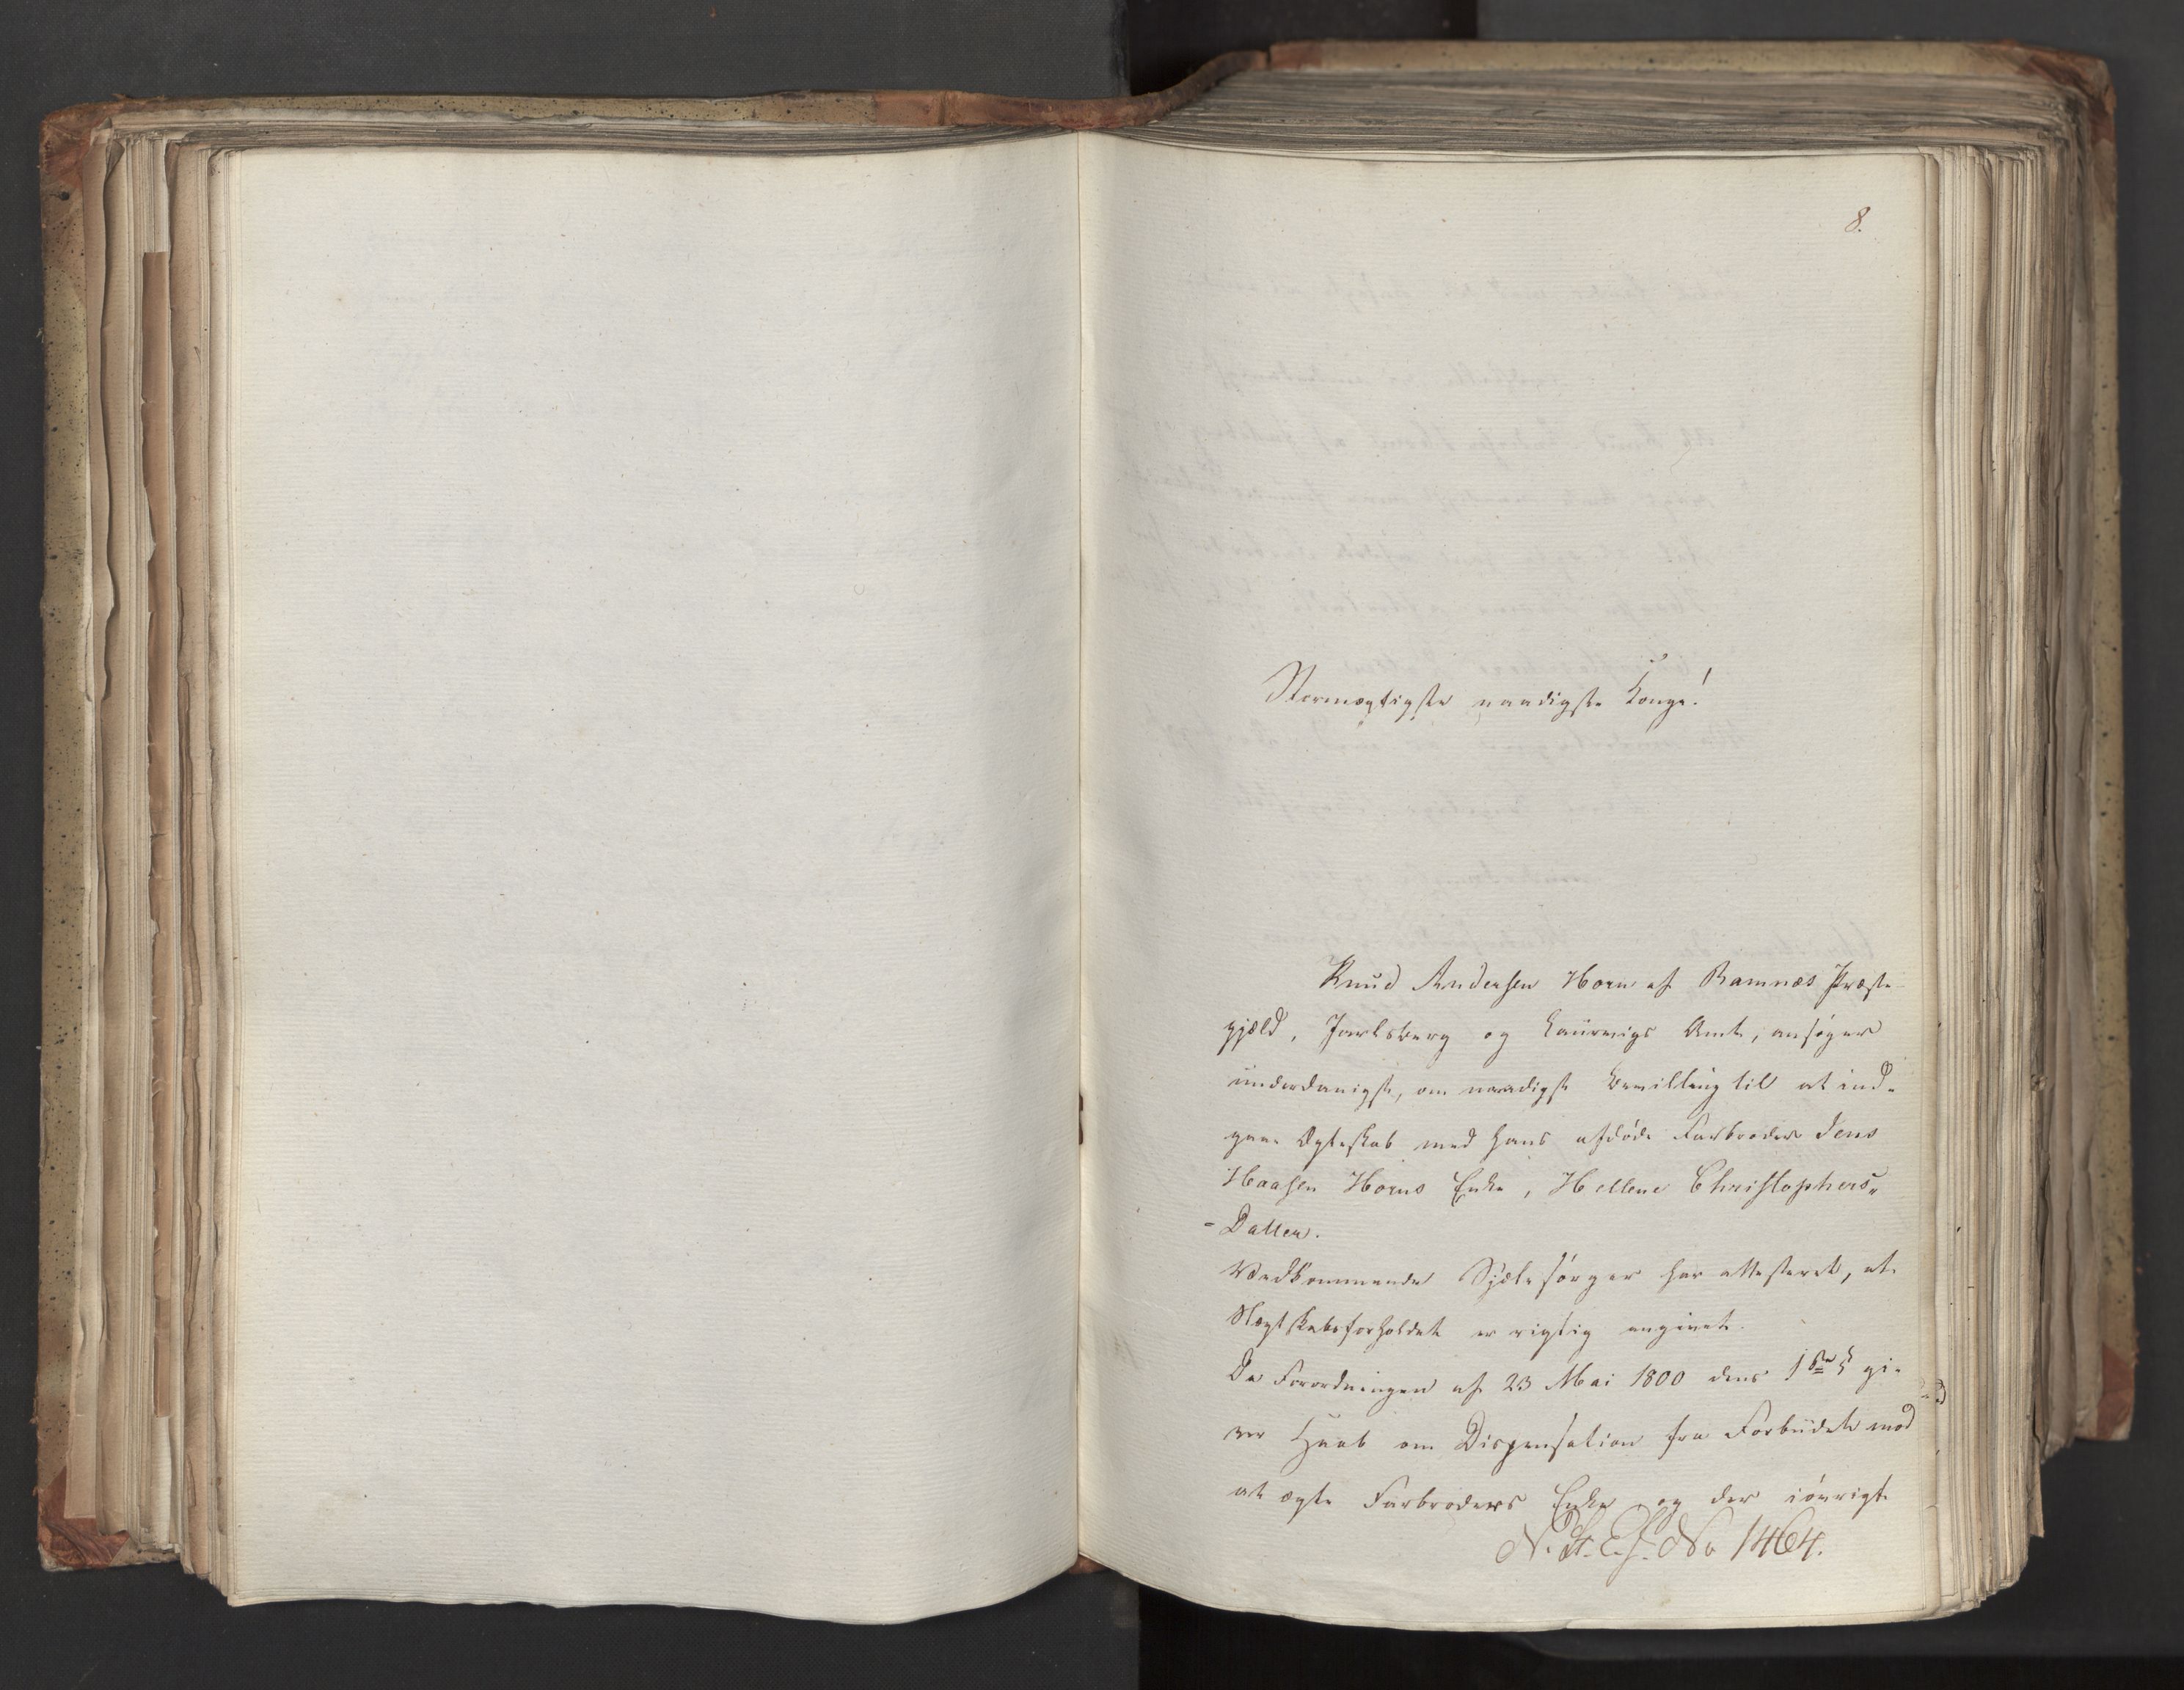 8.
Stormægtigste naadigste Konge!
Knud Andersen Horn af Ramnæs Præste-
gjæld, Jarlsberg og Laurvigs Amt, ansøger
underdanigst, om naadigst Bevilling til at ind-
gaae Ægteskab med hans afdøde Farbroder Jens
Haasen Horns Enke, Hellene Christophers„
-Datter.
Vedkommende Sjælesørger har attesteret, at
Slægtskabsforholdet er rigtig angivet.
Da Forordningen af 23 Mai 1800 dens 1ste § gi-
ver Haab om Dispensation fra Forbudet mod
at ægte Farbroders Enke, og der iøvrigt
N. St. C. J. No 1464.